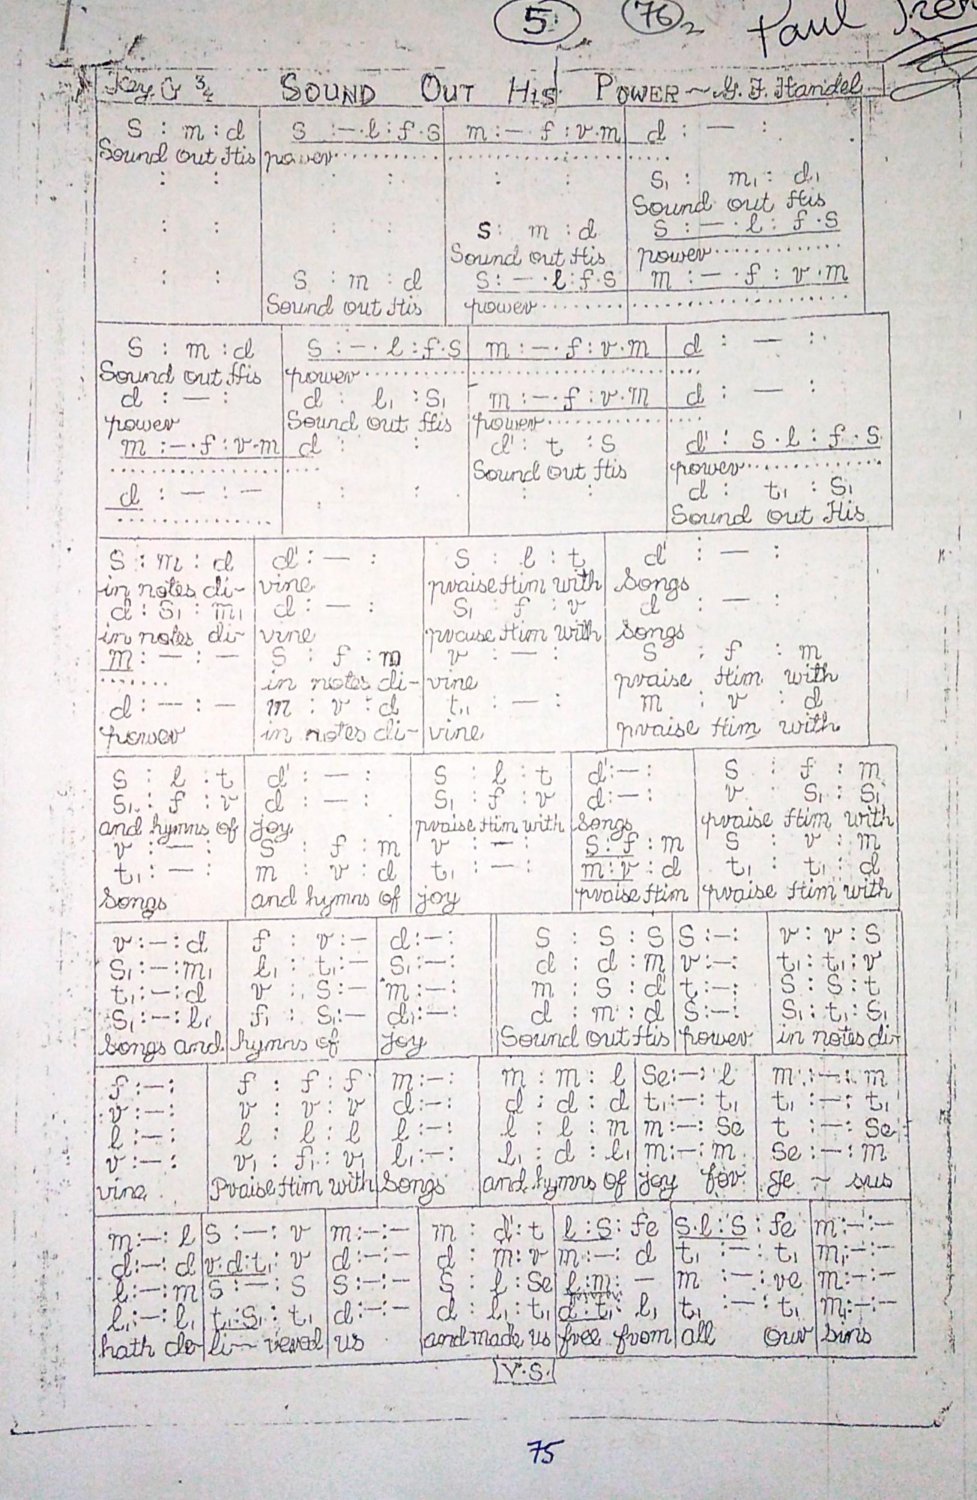 5 76 Paul
Key G 3/4 SOUND OUT HIS POWER ~ G. F. Handel
S : m : d | S : — · l : f · S | m : — · f : r · m | d : — :
Sound out His | power
: : | : : | : : | S₁ : m₁ : d₁
Sound out His
: : | : : | S : m : d | S : — · l : f · S
Sound out His | power
: : | S : m : d | S : — · l : f · S | m : — · f : r · m
Sound out His | power
S : m : d | S : — · l : f · S | m : — · f : r · m | d : — :
Sound out His | power
d : — : | d : l₁ : S₁ | m : — · f : r · m | d : — :
power | Sound out His | power
m : — · f : r · m | d : : | d' : t : S | d' : S · l : f · S
Sound out His | power
d : — : — | : : | : : | d : t₁ : S₁
Sound out His
S : m : d | d' : — : | S : l : t | d' : — :
in notes di- | vine | praise Him with | Songs
d : S₁ : m₁ | d : — : | S₁ : f : r | d : — :
in notes di- | vine | praise Him with | Songs
m : — : — | S : f : m | r : — : | S : f : m
in notes di- | vine | praise Him with
d : — : — | m : r : d | t₁ : — : | m : r : d
power | in notes di- | vine | praise Him with
S : l : t | d' : — : | S : l : t | d' : — : | S : f : m
S₁ : f : r | d : — : | S₁ : f : r | d : — : | r : S₁ : S₁
and hymns of | joy | praise Him with | Songs | praise Him with
r : — : | S : f : m | r : — : | S : f : m | S : r : m
t₁ : — : | m : r : d | t₁ : — : | m : r : d | t₁ : t₁ : d
Songs | and hymns of | joy | praise Him | praise Him with
r : — : d | f : r : — | d : — : | S : S : S | S : — : | r : r : S
S₁ : — : m₁ | l₁ : t₁ : — | S₁ : — : | d : d : m | r : — : | t₁ : t₁ : r
t₁ : — : d | r : S : — | m : — : | m : S : d' | t : — : | S : S : t
S₁ : — : l₁ | f₁ : S₁ : — | d₁ : — : | d : m : d | S : — : | S₁ : t₁ : S₁
Songs and | hymns of | joy | Sound out His | power | in notes di-
f : — : | f : f : f | m : — : | m : m : l | Se : — : l | m : — : m
r : — : | r : r : r | d : — : | d : d : d | t₁ : — : t₁ | t₁ : — : t₁
l : — : | l : l : l | l : — : | l : l : m | m : — : Se | t : — : Se
r : — : | r₁ : f₁ : r₁ | l₁ : — : | l₁ : d : l₁ | m : — : m | Se : — : m
vine | Praise Him with | Songs | and hymns of | joy for | Je ~ sus
m : — : l | S : — : r | m : — : — | m : d' : t | l : S : fe | S · l : S : fe | m : — : —
d : — : d | r · d : t₁ : r | d : — : — | d : m : r | m : — : d | t₁ : — : t₁ | m₁ : — : —
l : — : m | S : — : S | S : — : — | S : l : Se | l : m : — | m : — : re | m : — : —
l₁ : — : l₁ | t₁ : S₁ : t₁ | d : — : — | d : l₁ : t₁ | d : t₁ : l₁ | t₁ : — : t₁ | m₁ : — : —
hath de- | li ~ vered | us | and made us | free from | all our | sins
V.S.
75